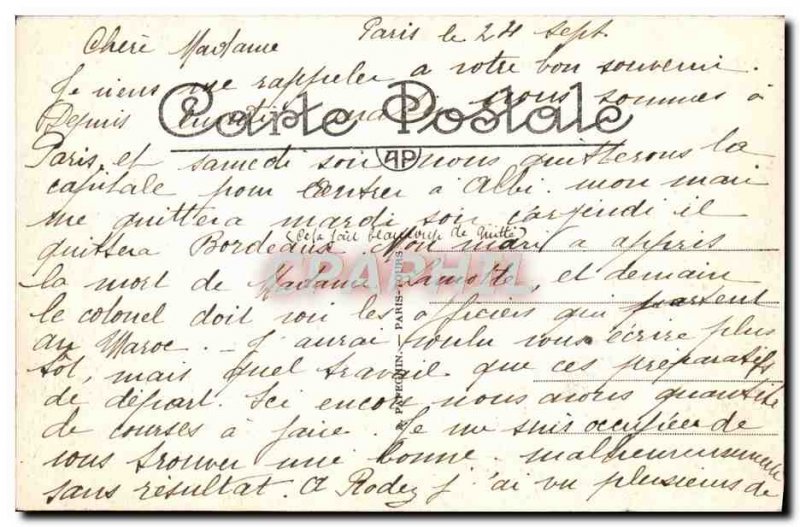 Paris le 24 sept
Chère Madame
Je viens me rappeler a votre bon souvenir.
Depuis mardi nous sommes à
Carte Postale
AP
Paris et samedi soir nous quitterons la
capitale pour rentrer à Albi. mon mari
me quittera mardi soir car jeudi il
(Cela fait beaucoup de quitté)
quittera Bordeaux. Mon mari a appris
la mort de Madame Lamotte, et demain
le colonel doit voir les officiers qui partent
au Maroc. - J'aurai voulu vous écrire plus
tôt, mais quel travail que ces préparatifs
de départ. Ici encore nous avons quantité
de courses à faire. Je me suis occupée de
vous trouver une bonne. malheureusement
sans résultat. A Rodez j'ai vu plusieurs de
PAPEGHIN - PARIS-TOURS
CPAPHIL